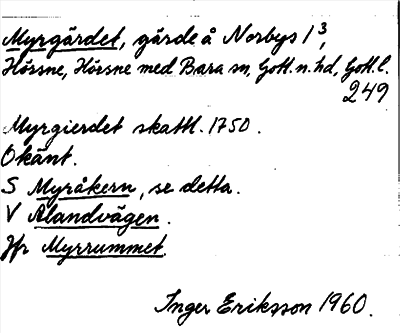 Myrgärdet, gärde å Norbys 1³,
Hörsne, Hörsne med Bara sn, Gotl. n. hd, Gotl. l.
249
Myrgierdet skattl. 1750.
Okänt.
S Myråkern, se detta.
V Ålandvägen.
Jfr Myrrummet.
Inger Eriksson 1960.